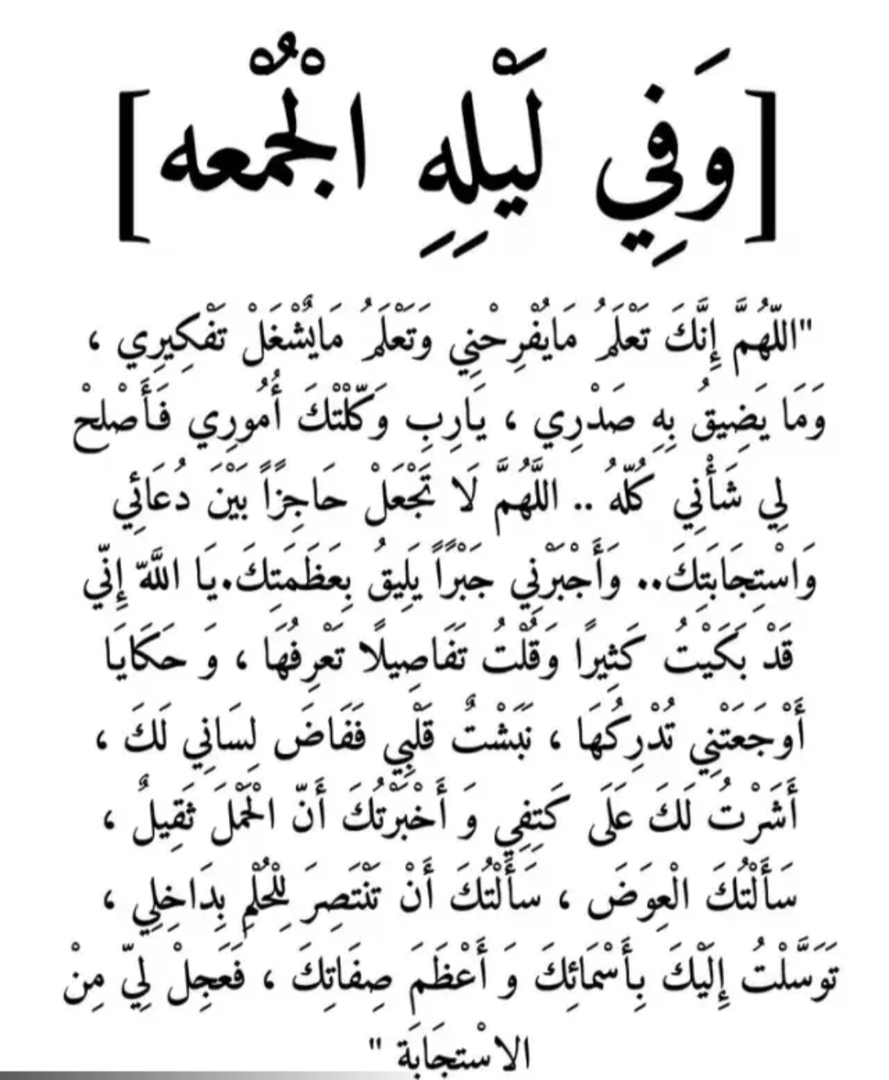 [وَفِي لَيْلِهِ الْجُمْعه]
"اللَّهُمَّ إِنَّكَ تَعْلَمُ مَايُفْرِحْنِي وَتَعْلَمُ مَايُشْغَلْ تَفْكِيرِي ،
وَمَا يَضِيقُ بِهِ صَدْرِي ، يَارِبِ وَكَّلْتْكَ أُمُورِي فَأَصْلحْ
لِي شَأْنِي كُلّهُ .. اللَّهُمَّ لَا تَجْعَلْ حَاجِزاً بَيْنَ دُعَائِي
وَاسْتِجَابَتِكَ.. وَأَجْبَرْنِي جَبْراً يَلِيقُ بِعَظَمَتِكَ.يَا اللَّهّ إِنِّي
قَدْ بَكَيْتُ كَثِيرًا وَقُلْتُ تَفَاصِيلًا تَعْرِفُهَا ، وَ حَكَايَا
أَوْجَعَتْنِي تُدْرِكُهَا ، نَبَشْتٌ قَلْبِي فَفَاضَ لِسَانِي لَكَ ،
أَشَرْتُ لَكَ عَلَى كَتِفِي وَ أَخْبَرْتُكَ أَنّ الْحَمْلَ ثَقِيلٌ ،
سَأَلْتُكَ الْعِوَضَ ، سَأَلْتُكَ أَنْ تَنْتَصِرَ لِلْحُلْمِ بِدَاخِلِي ،
تَوَسَّلْتُ إِلَيْكَ بِأَسْمَائِكَ وَ أَعْظَمَ صِفَاتِكَ ، فَعَجِلْ لِيّ مِنْ
الاسْتجَابَة "